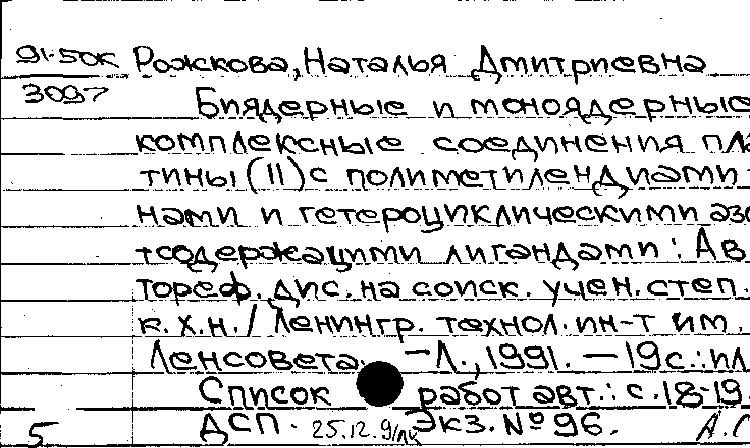 91-5ок Рожкова, Наталья Дмитриевна
3097 Биядерные и моноядерные
комплексные соединения пла
тины (II) с полиметилендиами-
нами и гетероциклическими азо
тсодержащими лигандами : Ав
тореф. дис. на соиск. учен. степ.
к.х.н. / Ленингр. технол. ин-т им.
Ленсовета. – Л., 1991. – 19 с.: ил
Список работ авт.: с. 18-19.
5 ДСП. 25.12.91 Экз. № 96.